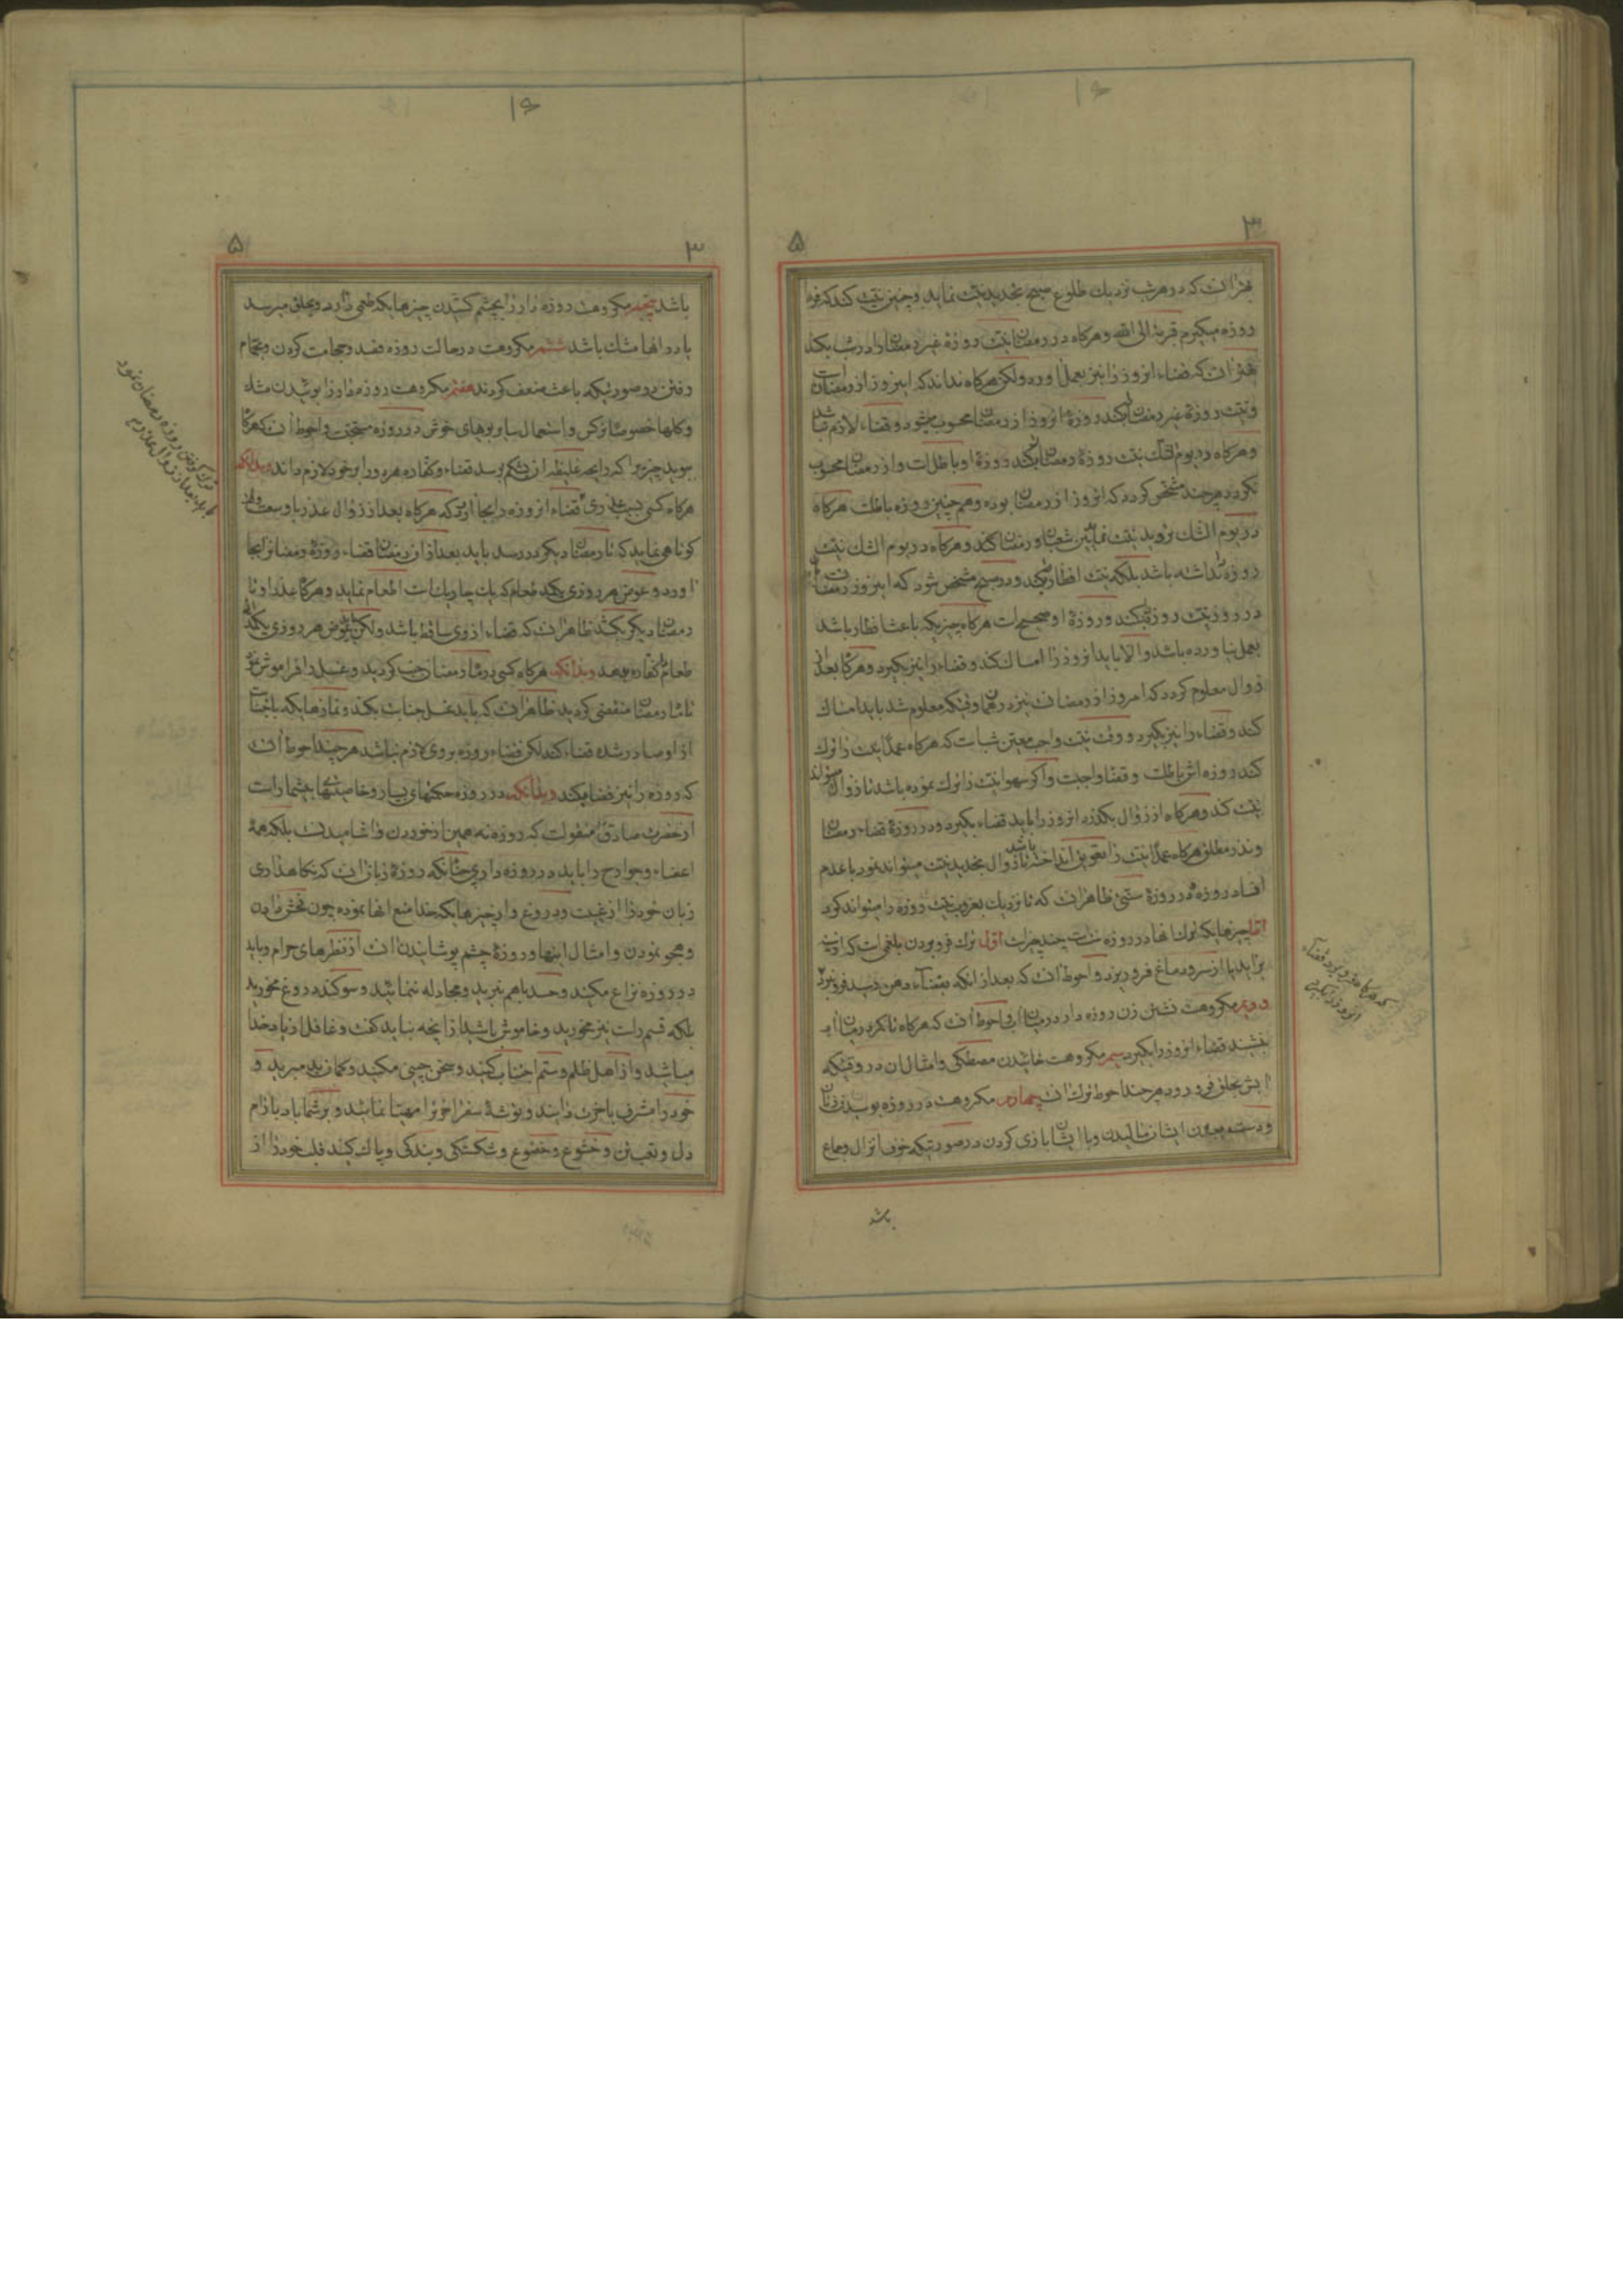 بهتر انست که در هر شب نزدیك طلوع صبح تجدید نیّت نماید و چنین نیّت کند که فردا
روزه میکیرم قربة الی الله و هرکاه در رمضان نیّت روزهٔ غیر رمضان را در شب بکند
بهتر انست که قضاء انروز را نیز بعمل اورد ولکن هرکاه نداند که اینروز از رمضان است
و نیّت روزهٔ غیر رمضان بکند روزهٔ انروز از رمضان محسوب میشود و قضاء لازم نباشد
و هرکاه در یوم الشك نیّت روزهٔ رمضان بکند روزهٔ او باطلست و از رمضان محسوب
نکردد هرچند مشخّص کردد که انروز از رمضان بوده و همچنین روزه باطلست هرکاه
در یوم الشك تردید نیّت نماید بین شعبان و رمضان کند و هرکاه در یوم الشك نیّت
روزه نداشته باشد بلکه نیّت افطار میکند و در صبح مشخّص شود که اینروز رمضان است
در روز نیّت روزه میکند و روزهٔ او صحیح است هرکاه چیزیکه باعث افطار باشد
بعمل نیاورده باشد والا باید انروز را امساك کند و قضاء را نیز بکیرد و هرکاه بعد از
زوال معلوم کردد که امروز از رمضان است نیز در همان وقتیکه معلوم شد باید امساك
کند و قضاء را نیز بکیرد و وقت نیّت واجب معیّن شب است که هرکاه عمداً نیّت را ترك
کند روزه اش باطلست و قضا واجبست و اکر سهوا نیّت را ترك نموده باشد تا زوال میتواند
نیّت کند و هرکاه از زوال بکذرد انروز را باید قضاء بکیرد و در روزهٔ قضاء رمضان
و نذر مطلق هرکاه عمداً نیّت را بتعویق انداخته باشد تا زوال تجدید نیّت میتواند نمود با عدم
افساد روزه و در روزهٔ سنّتی ظاهر انست که تا نزدیك بغروب نیّت روزه را میتواند کرد
امّا چیزهائیکه ترك انها در روزه سنّت است چند چیز است اوّل ترك فرو بردن بلغمی است که از سینه
براید یا از سر و دماغ فرو ریزد و احوط انست که بعد از انکه بفضاء دهن رسید فرو نبرد
دویم مکروهست نشستن زن روزه دار در میان اب و احوط انست که هرکاه تا کمر در میان اب
بنشیند قضاء انروز را بکیرد سیم مکروهست خائیدن مصطکی و امثال ان در وقتیکه
ابش بحلق فرو رود هرچند احوط ترك انست چهارم مکروهست در روزه بوسیدن زنان
و دست ببدن ایشان مالیدن و با ایشان بازی کردن در صورتیکه خوف انزال و جماع
باشد
که هرکاه فرو برد قضاء
انروز را بکیرد
باشد پنجم مکروهست روزه دار را بچشم کشیدن چیزهائیکه طعمی دارد و بحلق میرسد
یا در انها مشك باشد ششم مکروهست در حالت روزه فصد و حجامت کردن و بحمّام
رفتن در صورتیکه باعث ضعف کردند هفتم مکروهست روزه دار را بوئیدن مشك
و کلها خصوصا نرکس و استعمال سایر بوهای خوش در روزه مستحبّست و احوط انست که هرکاه
ببوید چیزیرا که رایحه غلیظه ازان بشکم برسد قضاء و کفّاره هر دو را بر خود لازم داند و بدانکه
هرکاه کسی بسبب عذری قضاء انروزه را بجا اورد که هرکاه بعد از زوال عذر با وسعت وقت
کوتاهی نماید که تا رمضان دیکر در رسد باید بعد از ان رمضان قضاء روزهٔ رمضانرا بجا
اورد و عوض هر روزی یکمد طعام که یك چاریك است اطعام نماید و هرکاه عذر او تا
رمضان دیکر بکشد ظاهر انست که قضاء از وی ساقط باشد ولکن باید عوض هر روزی یکمد
طعام کفّاره بدهد و بدانکه هرکاه کسی در ماه رمضان جنب کردید و غسل را فراموش نمود
تا ماه رمضان منقضی کردید ظاهر انست که باید غسل جنابت بکند و نمازهائیکه با جنابت
از او صادر شده قضاء کند لکن قضاء روزه بر وی لازم نباشد هرچند احوط انست
که روزه را نیز قضا بکند و بدانکه در روزه حکمتهای بسیار و خاصیتهای بیشمار است
از حضرت صادق منقولست که روزه نه همین از خوردن و اشامیدنست بلکه همهٔ
اعضاء و جوارح را باید در روزه داری چنانکه روزهٔ زبان انست که نکاهداری
زبان خود را از غیبت و دروغ و از چیزهائیکه خدا منع انها نموده چون فحش دادن
و هجو نمودن و امثال اینها و روزهٔ چشم پوشانیدن انست از نظرهای حرام و باید
در روزه نزاع مکنید و حسد با هم نبرید و مجادله ننمائید و سوکند دروغ مخورید
بلکه قسم راست نیز مخورید و خاموش باشید از انچه نباید کفت و غافل از یاد خدا
مباشید و از اهل ظلم و ستم اجتناب کنید و سخن چینی مکنید و کمان بد مبرید و
خود را مشرف باخرت دانید و توشهٔ سفر اخرترا مهیّا نمائید و بر شما باد بارام
دل و تعب تن و خشوع و خضوع و شکستکی و بندکی و پاك کنید قلب خود را از
ترك کرفتن روزه رمضان نمود
باید بعد از زوال عذر